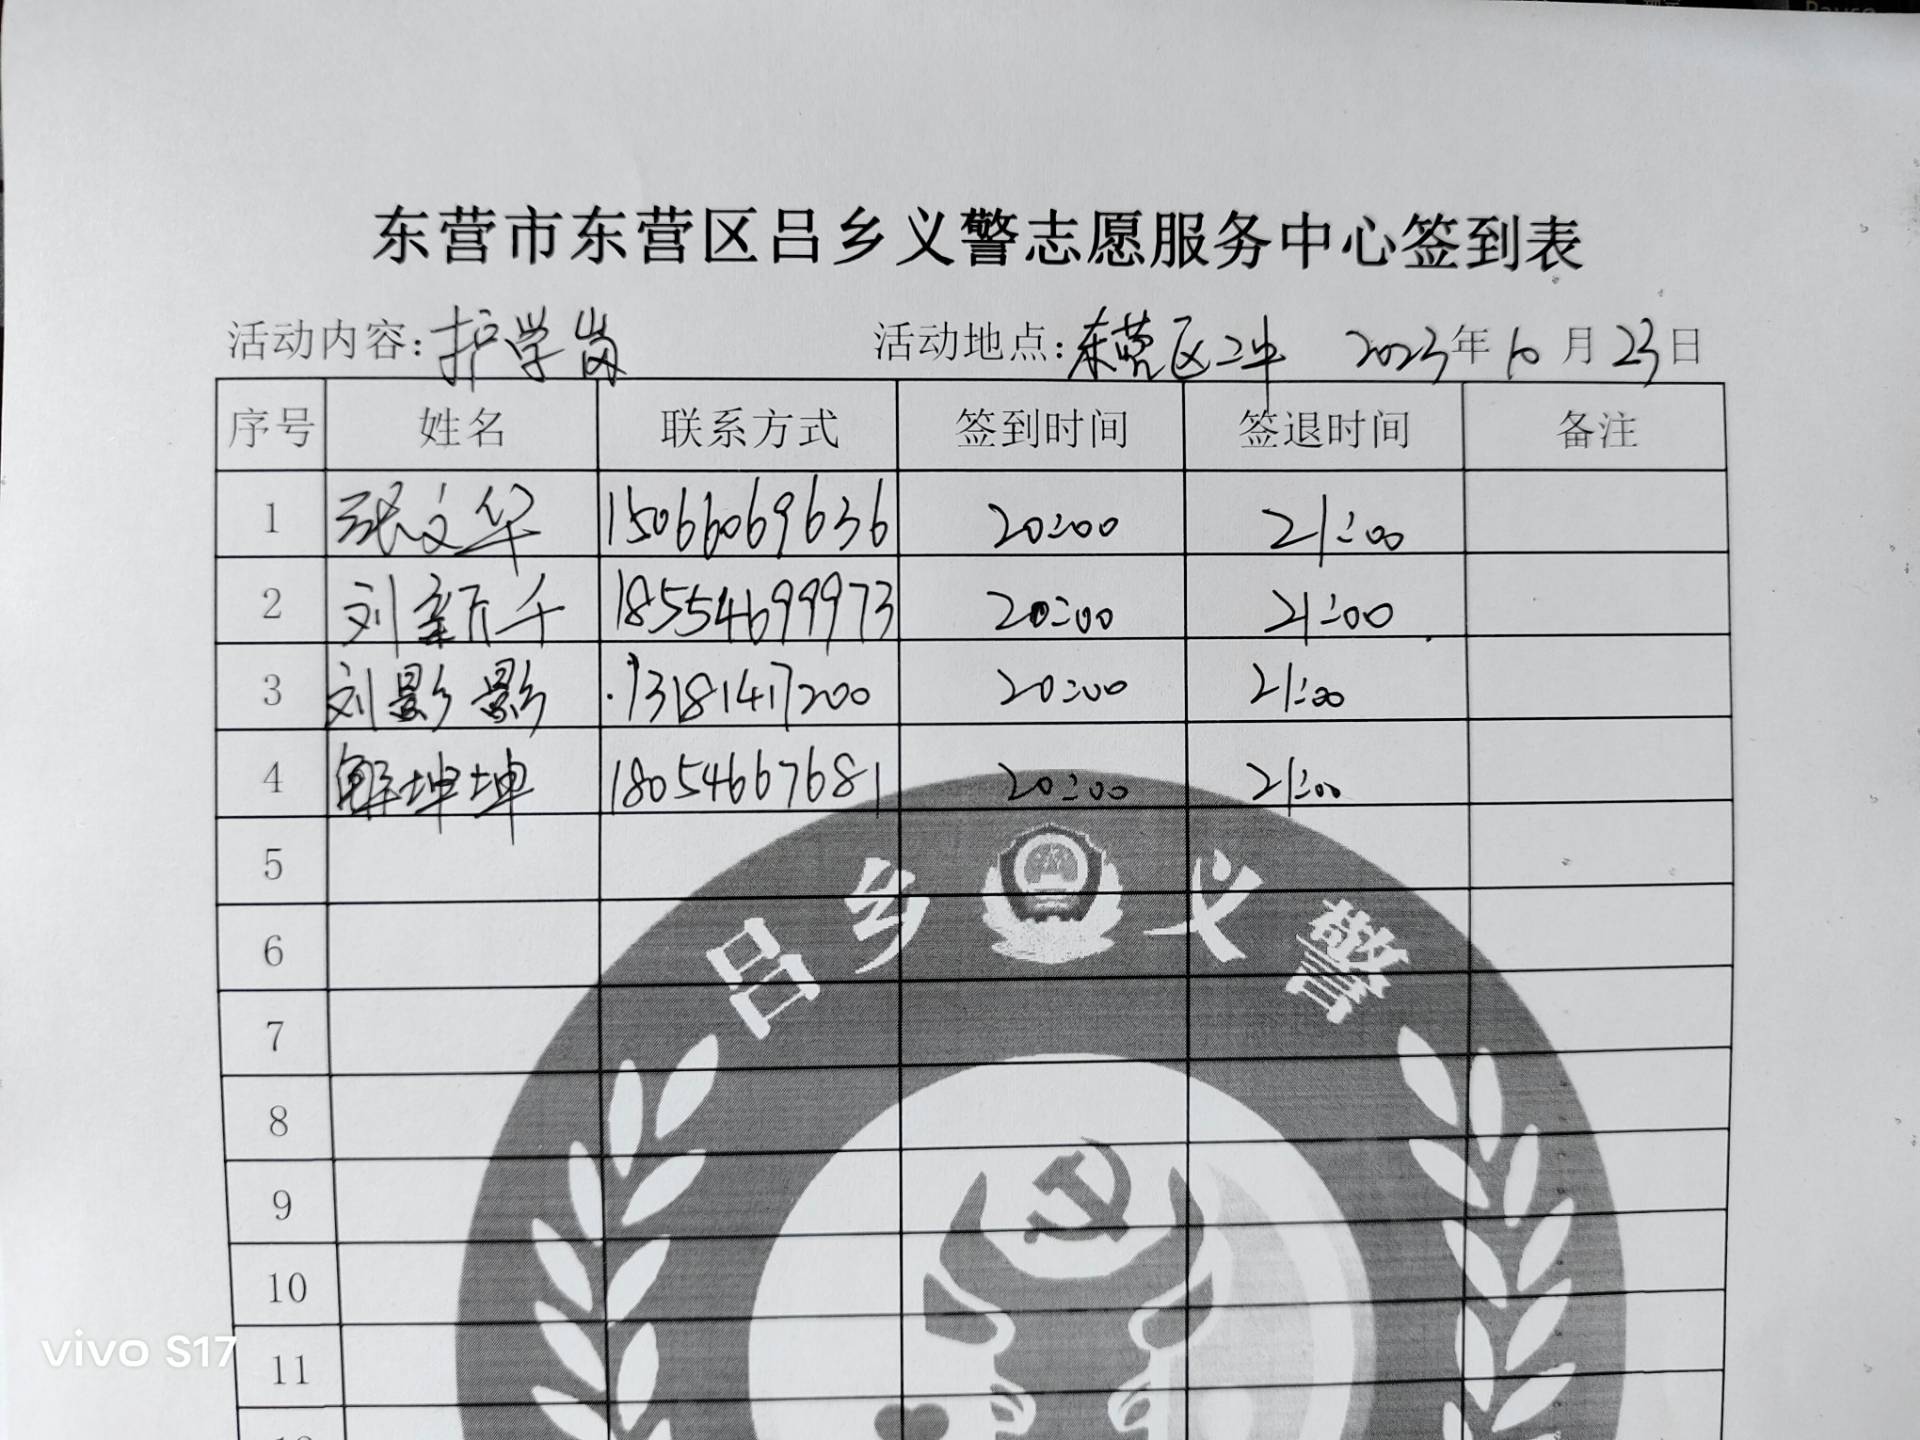 东营市东营区吕乡义警志愿服务中心签到表
活动内容:护学岗 活动地点:东营区二中 2023年10月23日
序号 姓名 联系方式 签到时间 签退时间 备注
1 张文华 15066069636 20:00 21:00
2 刘新千 18554699973 20:00 21:00
3 刘影影 13181417200 20:00 21:00
4 坤坤 18054667681 20:00 21:00
5
吕乡义警
6
7
8
9
10
11
vivo S17